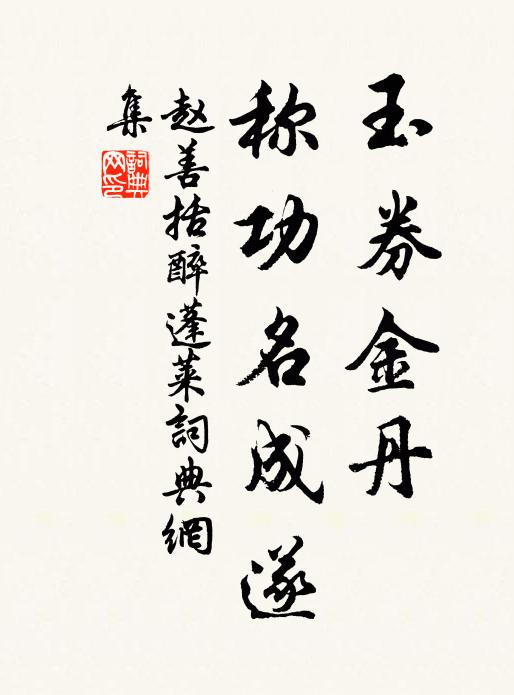 玉券金丹
称功名成遂
赵善括醉蓬莱詞典網
集
詞典
网印